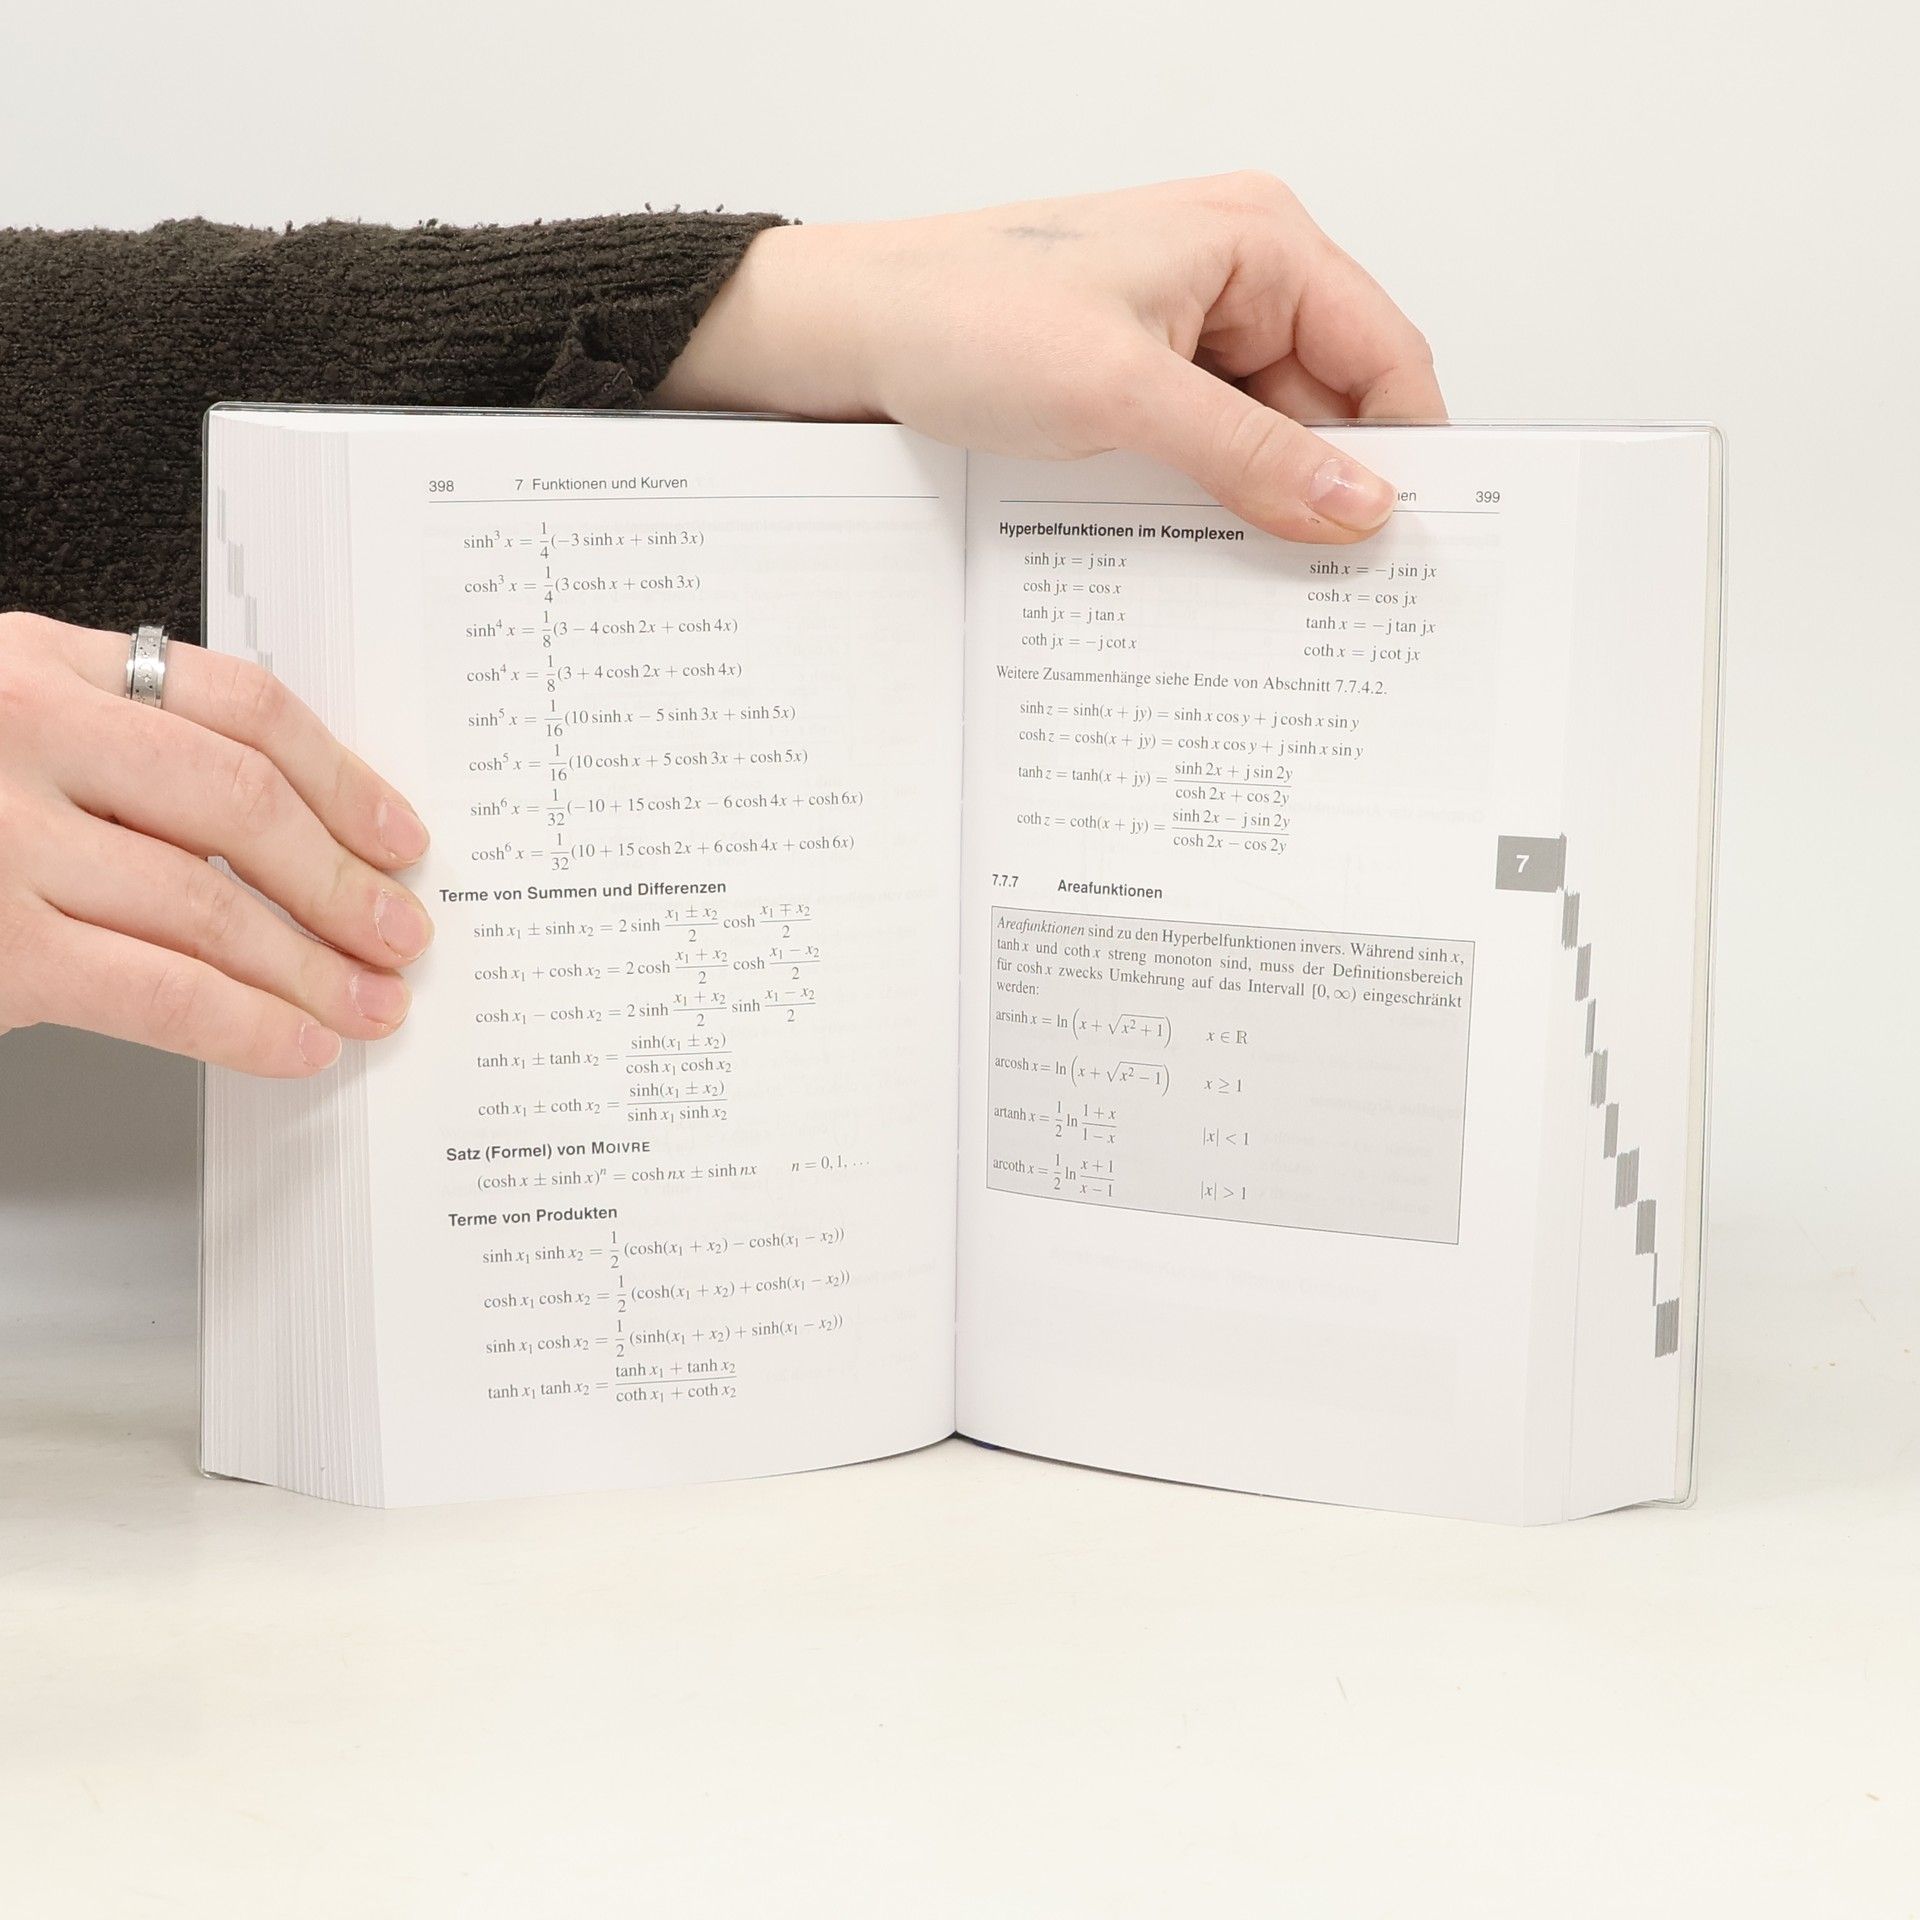 398 7 Funktionen und Kurven
sinh³ x = 1/4(−3 sinh x + sinh 3x)
cosh³ x = 1/4(3 cosh x + cosh 3x)
sinh⁴ x = 1/8(3 − 4 cosh 2x + cosh 4x)
cosh⁴ x = 1/8(3 + 4 cosh 2x + cosh 4x)
sinh⁵ x = 1/16(10 sinh x − 5 sinh 3x + sinh 5x)
cosh⁵ x = 1/16(10 cosh x + 5 cosh 3x + cosh 5x)
sinh⁶ x = 1/32(−10 + 15 cosh 2x − 6 cosh 4x + cosh 6x)
cosh⁶ x = 1/32(10 + 15 cosh 2x + 6 cosh 4x + cosh 6x)
Terme von Summen und Differenzen
sinh x₁ ± sinh x₂ = 2 sinh (x₁ ± x₂)/2 cosh (x₁ ∓ x₂)/2
cosh x₁ + cosh x₂ = 2 cosh (x₁ + x₂)/2 cosh (x₁ − x₂)/2
cosh x₁ − cosh x₂ = 2 sinh (x₁ + x₂)/2 sinh (x₁ − x₂)/2
tanh x₁ ± tanh x₂ = sinh(x₁ ± x₂)/(cosh x₁ cosh x₂)
coth x₁ ± coth x₂ = sinh(x₁ ± x₂)/(sinh x₁ sinh x₂)
Satz (Formel) von MOIVRE
(cosh x ± sinh x)ⁿ = cosh nx ± sinh nx n = 0, 1, …
Terme von Produkten
sinh x₁ sinh x₂ = 1/2 (cosh(x₁ + x₂) − cosh(x₁ − x₂))
cosh x₁ cosh x₂ = 1/2 (cosh(x₁ + x₂) + cosh(x₁ − x₂))
sinh x₁ cosh x₂ = 1/2 (sinh(x₁ + x₂) + sinh(x₁ − x₂))
tanh x₁ tanh x₂ = (tanh x₁ + tanh x₂)/(coth x₁ + coth x₂)
399
Hyperbelfunktionen im Komplexen
sinh jx = j sin x sinh x = −j sin jx
cosh jx = cos x cosh x = cos jx
tanh jx = j tan x tanh x = −j tan jx
coth jx = −j cot x coth x = j cot jx
Weitere Zusammenhänge siehe Ende von Abschnitt 7.7.4.2.
sinh z = sinh(x + jy) = sinh x cos y + j cosh x sin y
cosh z = cosh(x + jy) = cosh x cos y + j sinh x sin y
tanh z = tanh(x + jy) = (sinh 2x + j sin 2y)/(cosh 2x + cos 2y)
coth z = coth(x + jy) = (sinh 2x − j sin 2y)/(cosh 2x − cos 2y)
7
7.7.7 Areafunktionen
Areafunktionen sind zu den Hyperbelfunktionen invers. Während sinh x,
tanh x und coth x streng monoton sind, muss der Definitionsbereich
für cosh x zwecks Umkehrung auf das Intervall [0, ∞) eingeschränkt
werden:
arsinh x = ln (x + √(x² + 1)) x ∈ ℝ
arcosh x = ln (x + √(x² − 1)) x ≥ 1
artanh x = 1/2 ln (1 + x)/(1 − x) |x| < 1
arcoth x = 1/2 ln (x + 1)/(x − 1) |x| > 1